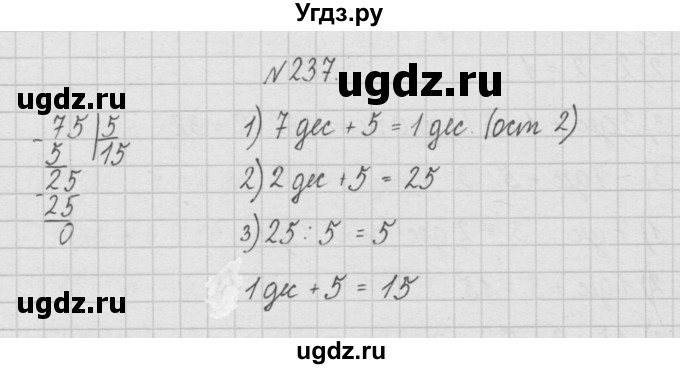 Угдз.ру
№237.
ugdz.ru ugdz.ru
75 | 5
- 5 15
25
- 25
0
1) 7 дес + 5 = 1 дес. (ост 2)
2) 2 дес + 5 = 25
ugdz.ru ugdz.ru
3) 25 : 5 = 5
1 дес + 5 = 15
ugdz.ru ugdz.ru
ugdz.ru